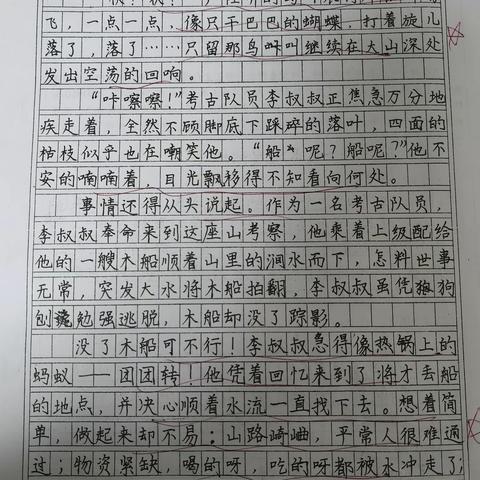 飞，一点一点，像只干巴巴的蝴蝶，打着旋儿
落了，落了……只留那鸟叫叫继续在大山深处
发出空荡的回响。
“咔嚓嚓！”考古队员李叔叔正焦急万分地
疾走着，全然不顾脚底下踩碎的落叶，四面的
枯枝似乎也在嘲笑他。“船呢？船呢？”他不
安的喃喃着，目光飘移得不知看向何处。
事情还得从头说起。作为一名考古队员，
李叔叔奉命来到这座山考察，他乘着上级配给
他的一艘木船顺着山里的涧水而下，怎料世事
无常，突发大水将木船拍翻，李叔叔虽凭狗
刨勉强逃脱，木船却没了踪影。
没了木船可不行！李叔叔急得像热锅上的
蚂蚁——团团转！他凭着回忆来到了将才丢船
的地点，并决心顺着水流一直找下去。想着简
单，做起来却不易：山路崎岖，平常人很难通
过；物资紧缺，喝的呀，吃的呀都被水冲走了；